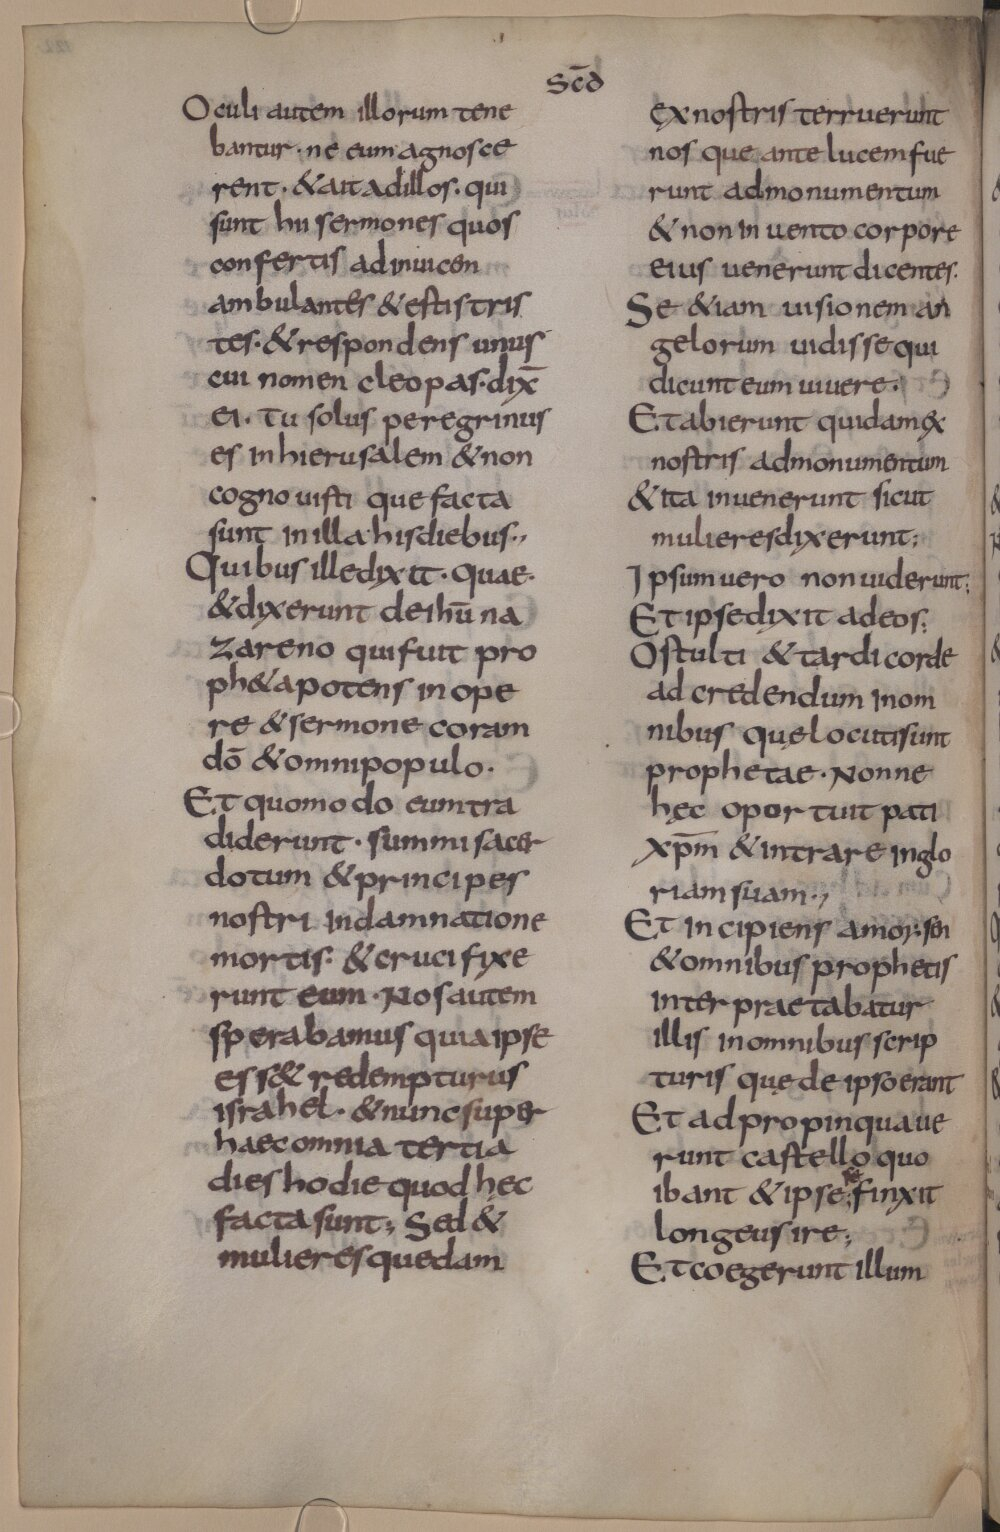 Scd̄
Oculi autem illorum tene
bantur · ne eum agnosce
rent · & ait ad illos · qui
sunt hii sermones quos
confertis adinuicem
ambulantes & estis tris
tes · & respondens unus
cui nomen cleopas · dix̄
ei · Tu solus peregrinus
es in hierusalem & non
cognouisti que facta
sunt in illa his diebus ·,
Quibus ille dixit · Quae ·
& dixerunt de ihū na
zareno qui fuit pro
ph&a potens in ope
re & sermone coram
dō & omni populo ·
Et quomodo eum tra
diderunt · summi sacer
dotum & principes
nostri in damnatione
mortis · & crucifixe
runt eum · Nos autem
sperabamus quia ipse
ess& redempturus
israhel · & nunc super
haec omnia tertia
dies hodie quod hęc
facta sunt ; Sed &
mulieres quedam
ex nostris terruerunt
nos que ante lucem fue
runt ad monumentum
& non inuento corpore
eius uenerunt dicentes ·
Se &iam uisionem an
gelorum uidisse qui
dicunt eum uiuere ·
Et abierunt quidam ex
nostris ad monumentum
& ita inuenerunt sicut
mulieres dixerunt ;
Ipsum uero non uiderunt ;
Et ipse dixit ad eos ;
O stulti & tardi corde
ad credendum in om
nibus quę locuti sunt
prophetae · Nonne
hęc oportuit pati
xp̄m & intrare in glo
riam suam ·,
Et incipiens a moyse
& omnibus prophetis
interpraetabatur
illis in omnibus scrip
turis quę de ipso erant
Et adpropinquaue
runt castello quo
ibant & ipse se finxit
longeus ire ;
Et coegerunt illum